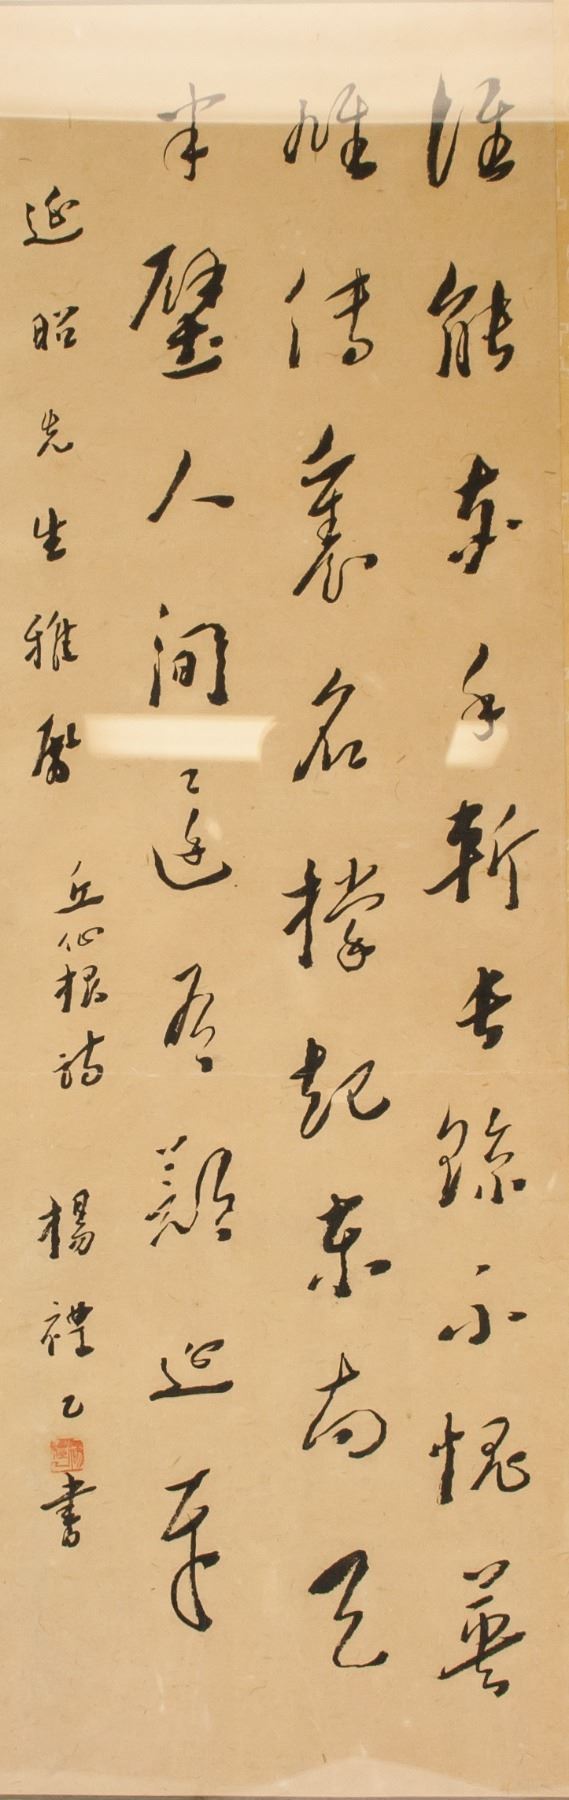 誰能赤手斬長鯨不愧英
雄傳裏名撐起東南天
半壁人間還有鄭延平
延昭先生雅屬 丘仙根詩 楊禮乙書